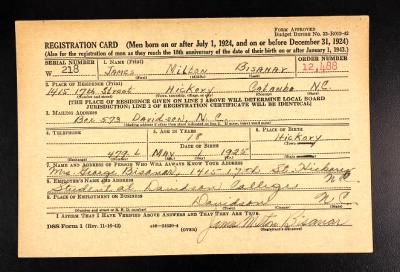 Form Approved
Budget Bureau No. 33-R012-42
REGISTRATION CARD (Men born on or after July 1, 1924, and on or before December 31, 1924)
(Also for the registration of men as they reach the 18th anniversary of the date of their birth on or after January 1, 1943.)
SERIAL NUMBER 1. NAME (Print) ORDER NUMBER
W 218 James Milton Bisanar 12,488
(First) (Middle) (Last)
2. PLACE OF RESIDENCE (Print)
1415 17th Street Hickory Catawba N.C.
[THE PLACE OF RESIDENCE GIVEN ON LINE 2 ABOVE WILL DETERMINE LOCAL BOARD
JURISDICTION; LINE 2 OF REGISTRATION CERTIFICATE WILL BE IDENTICAL]
3. MAILING ADDRESS
Box 573 Davidson, N.C.
4. TELEPHONE 5. AGE IN YEARS 6. PLACE OF BIRTH
18 Hickory
DATE OF BIRTH
479 L May 1 1925 N.C.
7. NAME AND ADDRESS OF PERSON WHO WILL ALWAYS KNOW YOUR ADDRESS
Mrs. George Bisanar, 1415 17th St. Hickory N.C.
8. EMPLOYER'S NAME AND ADDRESS
Student at Davidson College
9. PLACE OF EMPLOYMENT OR BUSINESS
Davidson N.C.
I AFFIRM THAT I HAVE VERIFIED ABOVE ANSWERS AND THAT THEY ARE TRUE.
DSS Form 1 (Rev. 11-16-42) (OVER) James Milton Bisanar